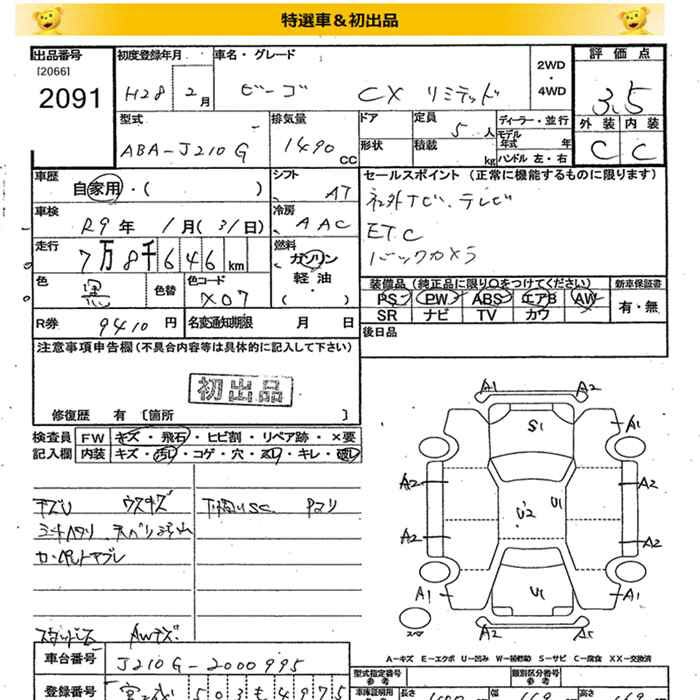 特選車＆初出品
出品番号
[2066]
2091
初度登録年月
H28 2月
車名・グレード
ビーゴ CX リミテッド
2WD
・
4WD
評価点
3.5
外装 内装
C C
型式
ABA-J210G
排気量
1490 CC
ドア
定員
5人
形状
積載
kg
ディーラー・並行
モデル
年式 年
ハンドル 左・右
車歴
自家用・( )
シフト
AT
セールスポイント (正常に機能するものに限ります)
社外ナビ、テレビ
ETC
バックカメラ
車検
R9年 1月(31日)
冷房
AAC
走行
7万8千646km
燃料
ガソリン
軽油
・( )
色
黒
色替
色コード
X07
装備品 (純正品に限り〇をつけてください)
新車保証書
PS PW ABS エアB AW
SR ナビ TV カワ
有・無
R券 9410円
名変通知期限 月 日
後日品
注意事項申告欄(不具合内容等は具体的に記入して下さい)
初出品
修復歴 有 [箇所 ]
検査員
記入欄
FW キズ・飛石・ヒビ割・リペア跡・×要
内装 キズ・汚レ・コゲ・穴・スレ・キレ・破レ
ウスキズ
下廻りSC Pコリ
AWキズ
A1 A2
S1
A1
A2 A2
U2 U1
A2 A2
A1 U1 A1
スペア
A2
A-キズ E-エクボ U-凹み W-補修跡 S-サビ C-腐食 XX-交換済
車台番号
J210G-2000995
登録番号
宮城 503も4975
型式指定番号
参考
類別区分番号
参考
車庫証明用
長さ
幅
高さ